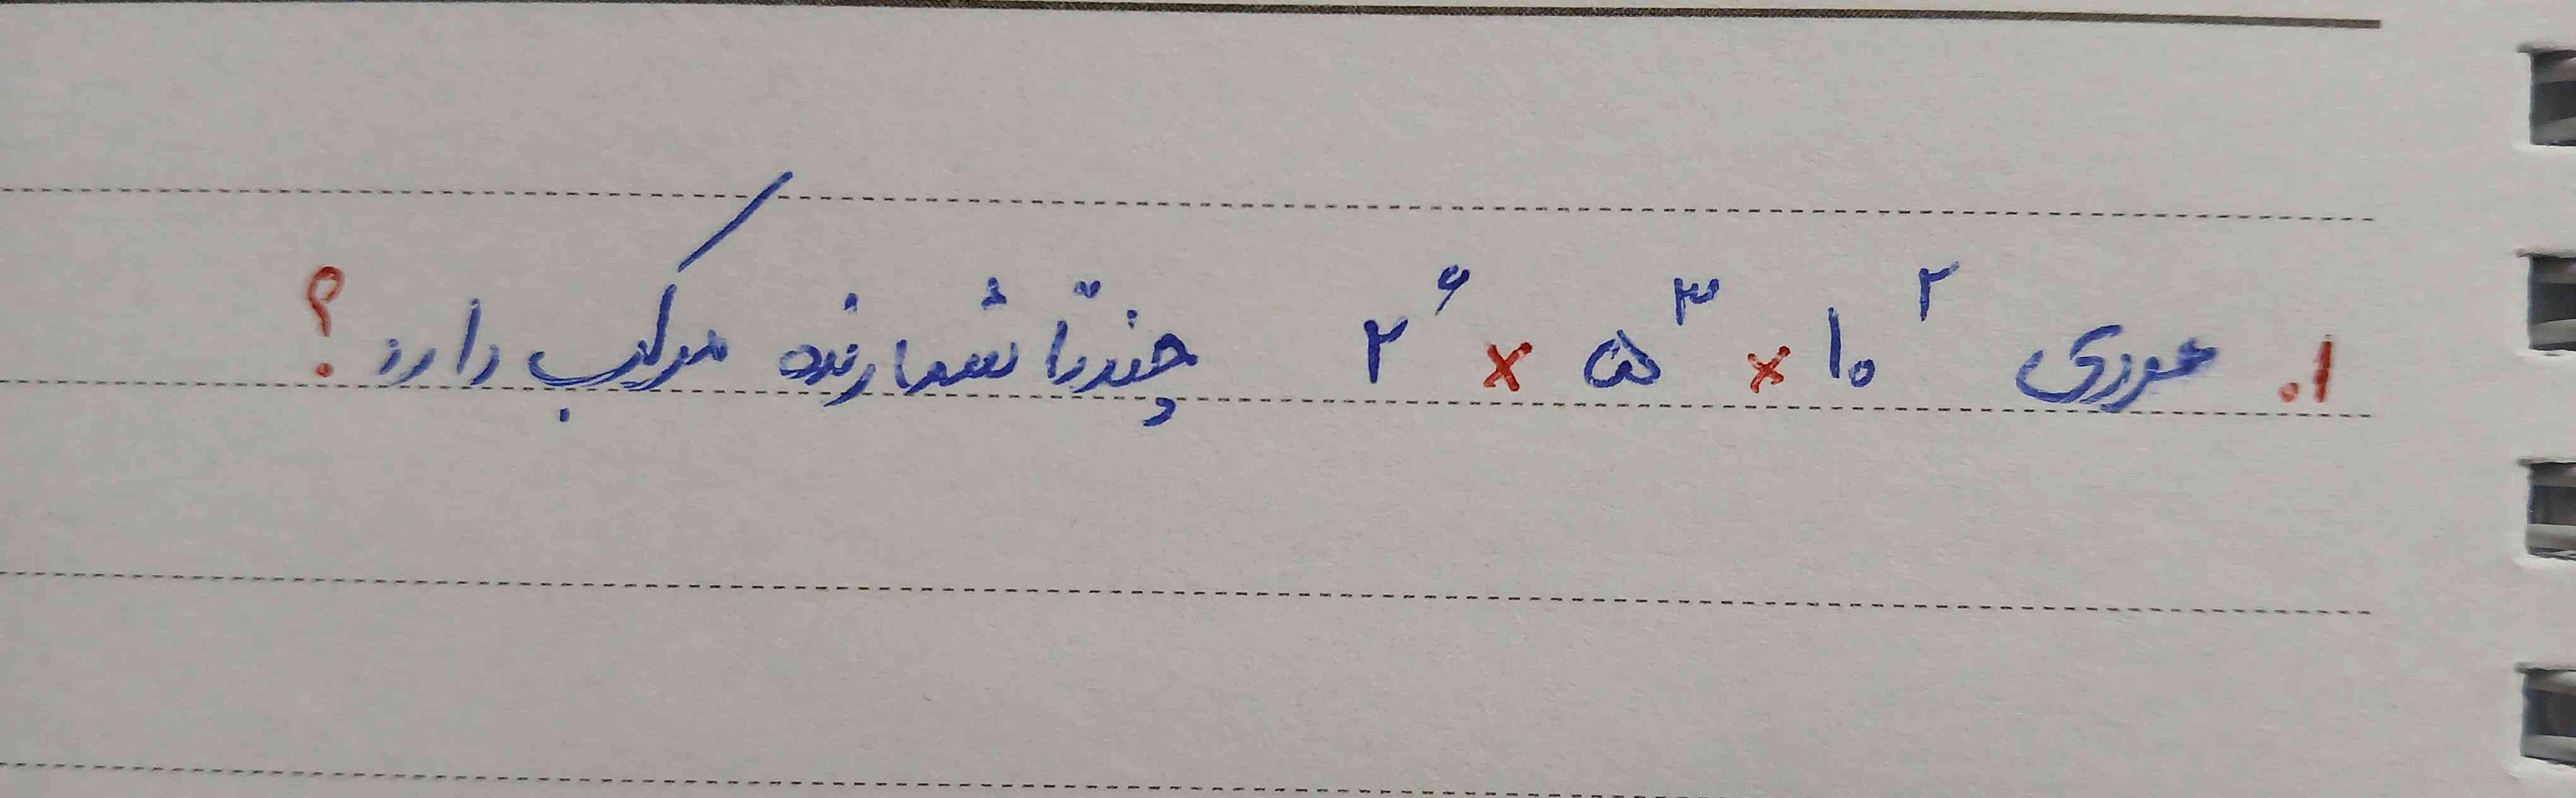 ۱. عددی ۲^۶ × ۵^۳ × ۱۰^۲ چندتا شمارنده مرکب دارد؟